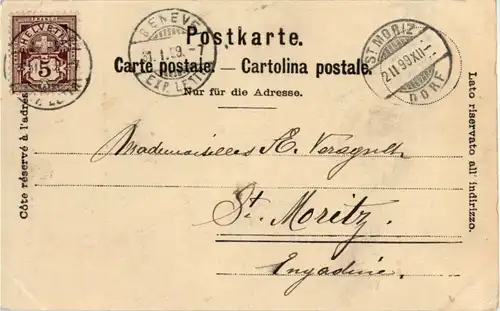 HELVETIA
5
EXP. LETT.
GENÈVE
31.I.99.-7
EXP. LETT.
Postkarte.
ST. MORIZ
2.II.99.XII-
DORF
Carte postale. — Cartolina postale.
Nur für die Adresse.
Côte réservé à l'adresse
Lato riservato all' indirizzo.
Mademoiselles E.
St. Moritz
Engadine.